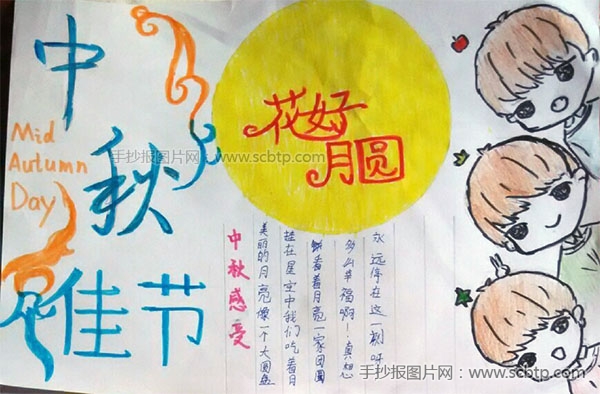 中
秋
佳节
Mid
Autumn
Day
花好
月圆
手抄报图片网：www.scbtp.com
中秋感受
美丽的月亮像一个大圆盘
挂在星空中我们吃着月
饼看着月亮一家团圆
多么幸福啊！真想
永远停在这一刻呀
手抄报图片网：www.scbtp.com